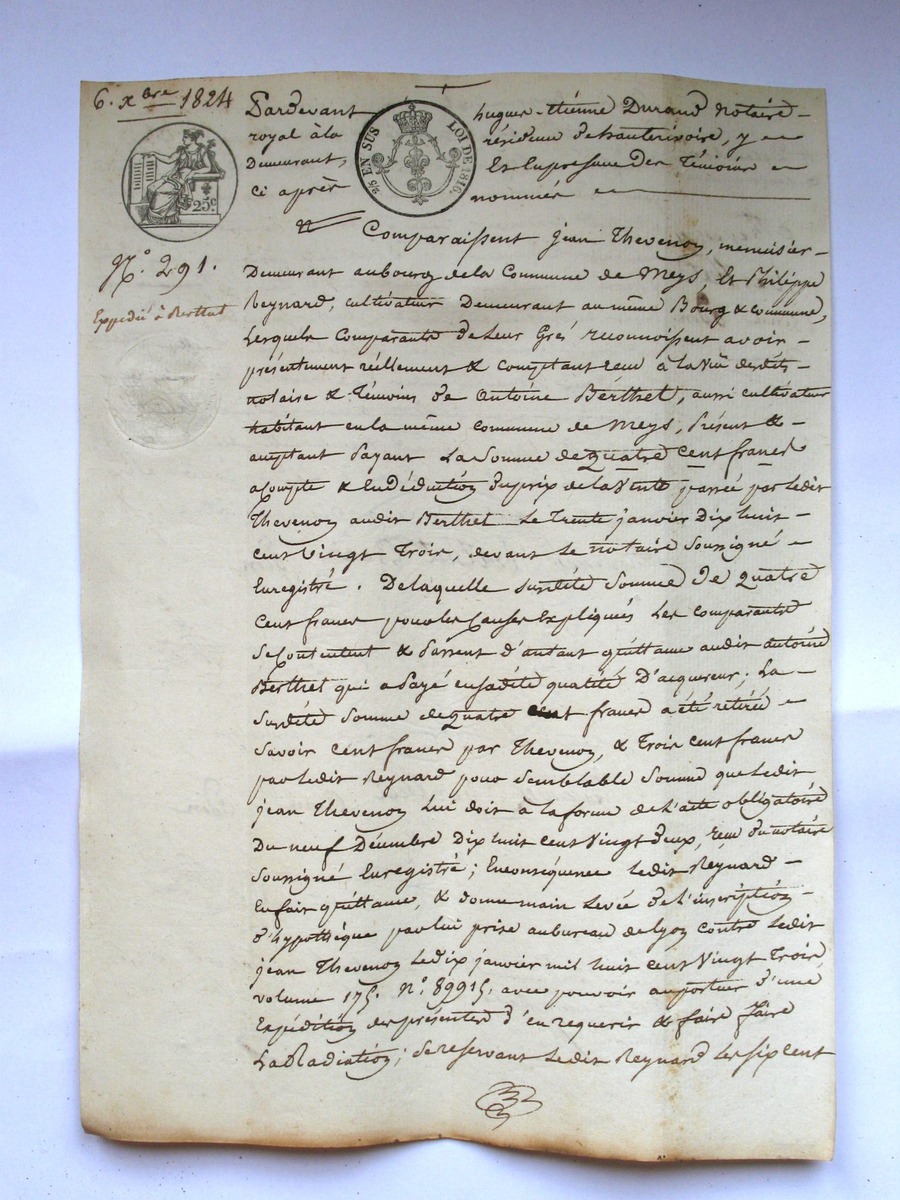 6. xbre 1824
Pardevant hugues-étienne Durand Notaire
royal à la résidence de hauterivoire, y
Demeurant, Et En presence Des Témoins
ci après nommés
2/5 EN SUS LOI DE 1816.
25c
N°. 291.
Expedié à Berthet
Comparaissent jean Thevenon, menuisier
Demeurant au bourg de la Commune de Meys, Et Philippe
Reynard, cultivateur Demeurant au même Bourg & commune,
Lesquels Comparants de Leur Grés reconnoissent avoir
présentement réellement & comptant reçu à la vüe desdits
notaire & Témoins de Antoine Berthet, aussi cultivateur
habitant en la même commune de Meys, Présent &
acceptant Payant La Somme de Quatre Cent francs
acompte & En Déduction du prix de la Vente passée par ledit
Thevenon audit Berthet Le Trente janvier Dix huit
cent Vingt Trois, devant le notaire Soussigné
Enregistré. De laquelle susdite Somme De Quatre
Cent francs pour les Causes Expliquées Les Comparants
Se Contentent & Passent d'autant quittance audit Antoine
Berthet qui a Payé en sadite qualité D'acquereur; La
Susdite Somme de Quatre cent francs a été retirée
Savoir Cent francs par Thevenon, & Trois Cent francs
par ledit Reynard pour Semblable Somme que ledit
jean Thevenon Lui doit à la forme de l'acte obligatoire
Du neuf Décembre Dix huit Cent Vingt deux, reçu du notaire
Soussigné Enregistré; En conséquence ledit Reynard
En fait quittance, & donne main Levée de l'inscription
d'hypothèque par lui prise au bureau de Lyon contre ledit
jean Thevenon le dix janvier mil huit cent Vingt Trois,
volume 175. N°. 89915, avec pouvoir au porteur d'une
Expédition des présentes d'en requerir & faire faire
La Radiation; Se reservant ledit Reynard les six cent